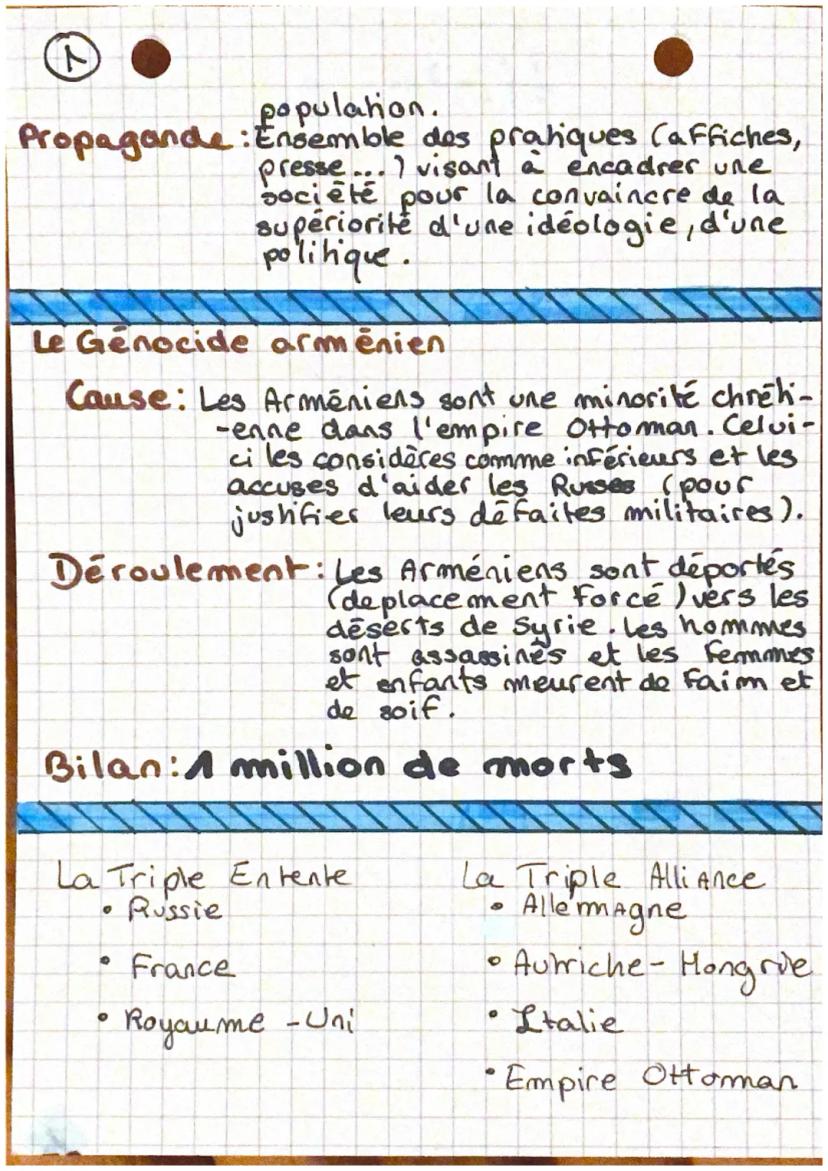 1
population.
Propagande : Ensemble des pratiques (affiches,
presse...) visant à encadrer une
société pour la convaincre de la
supériorité d'une idéologie, d'une
politique.
Le Génocide arménien
Cause : Les Arméniens sont une minorité chréti-
-enne dans l'empire Ottoman. Celui-
ci les considères comme inférieurs et les
accuses d'aider les Russes (pour
justifier leurs défaites militaires).
Déroulement : Les Arméniens sont déportés
(deplacement forcé) vers les
déserts de Syrie. Les hommes
sont assassinés et les femmes
et enfants meurent de faim et
de soif.
Bilan : 1 million de morts
La Triple Entente
• Russie
• France
• Royaume-Uni
La Triple Alliance
• Allemagne
• Autriche-Hongrie
• Italie
• Empire Ottoman